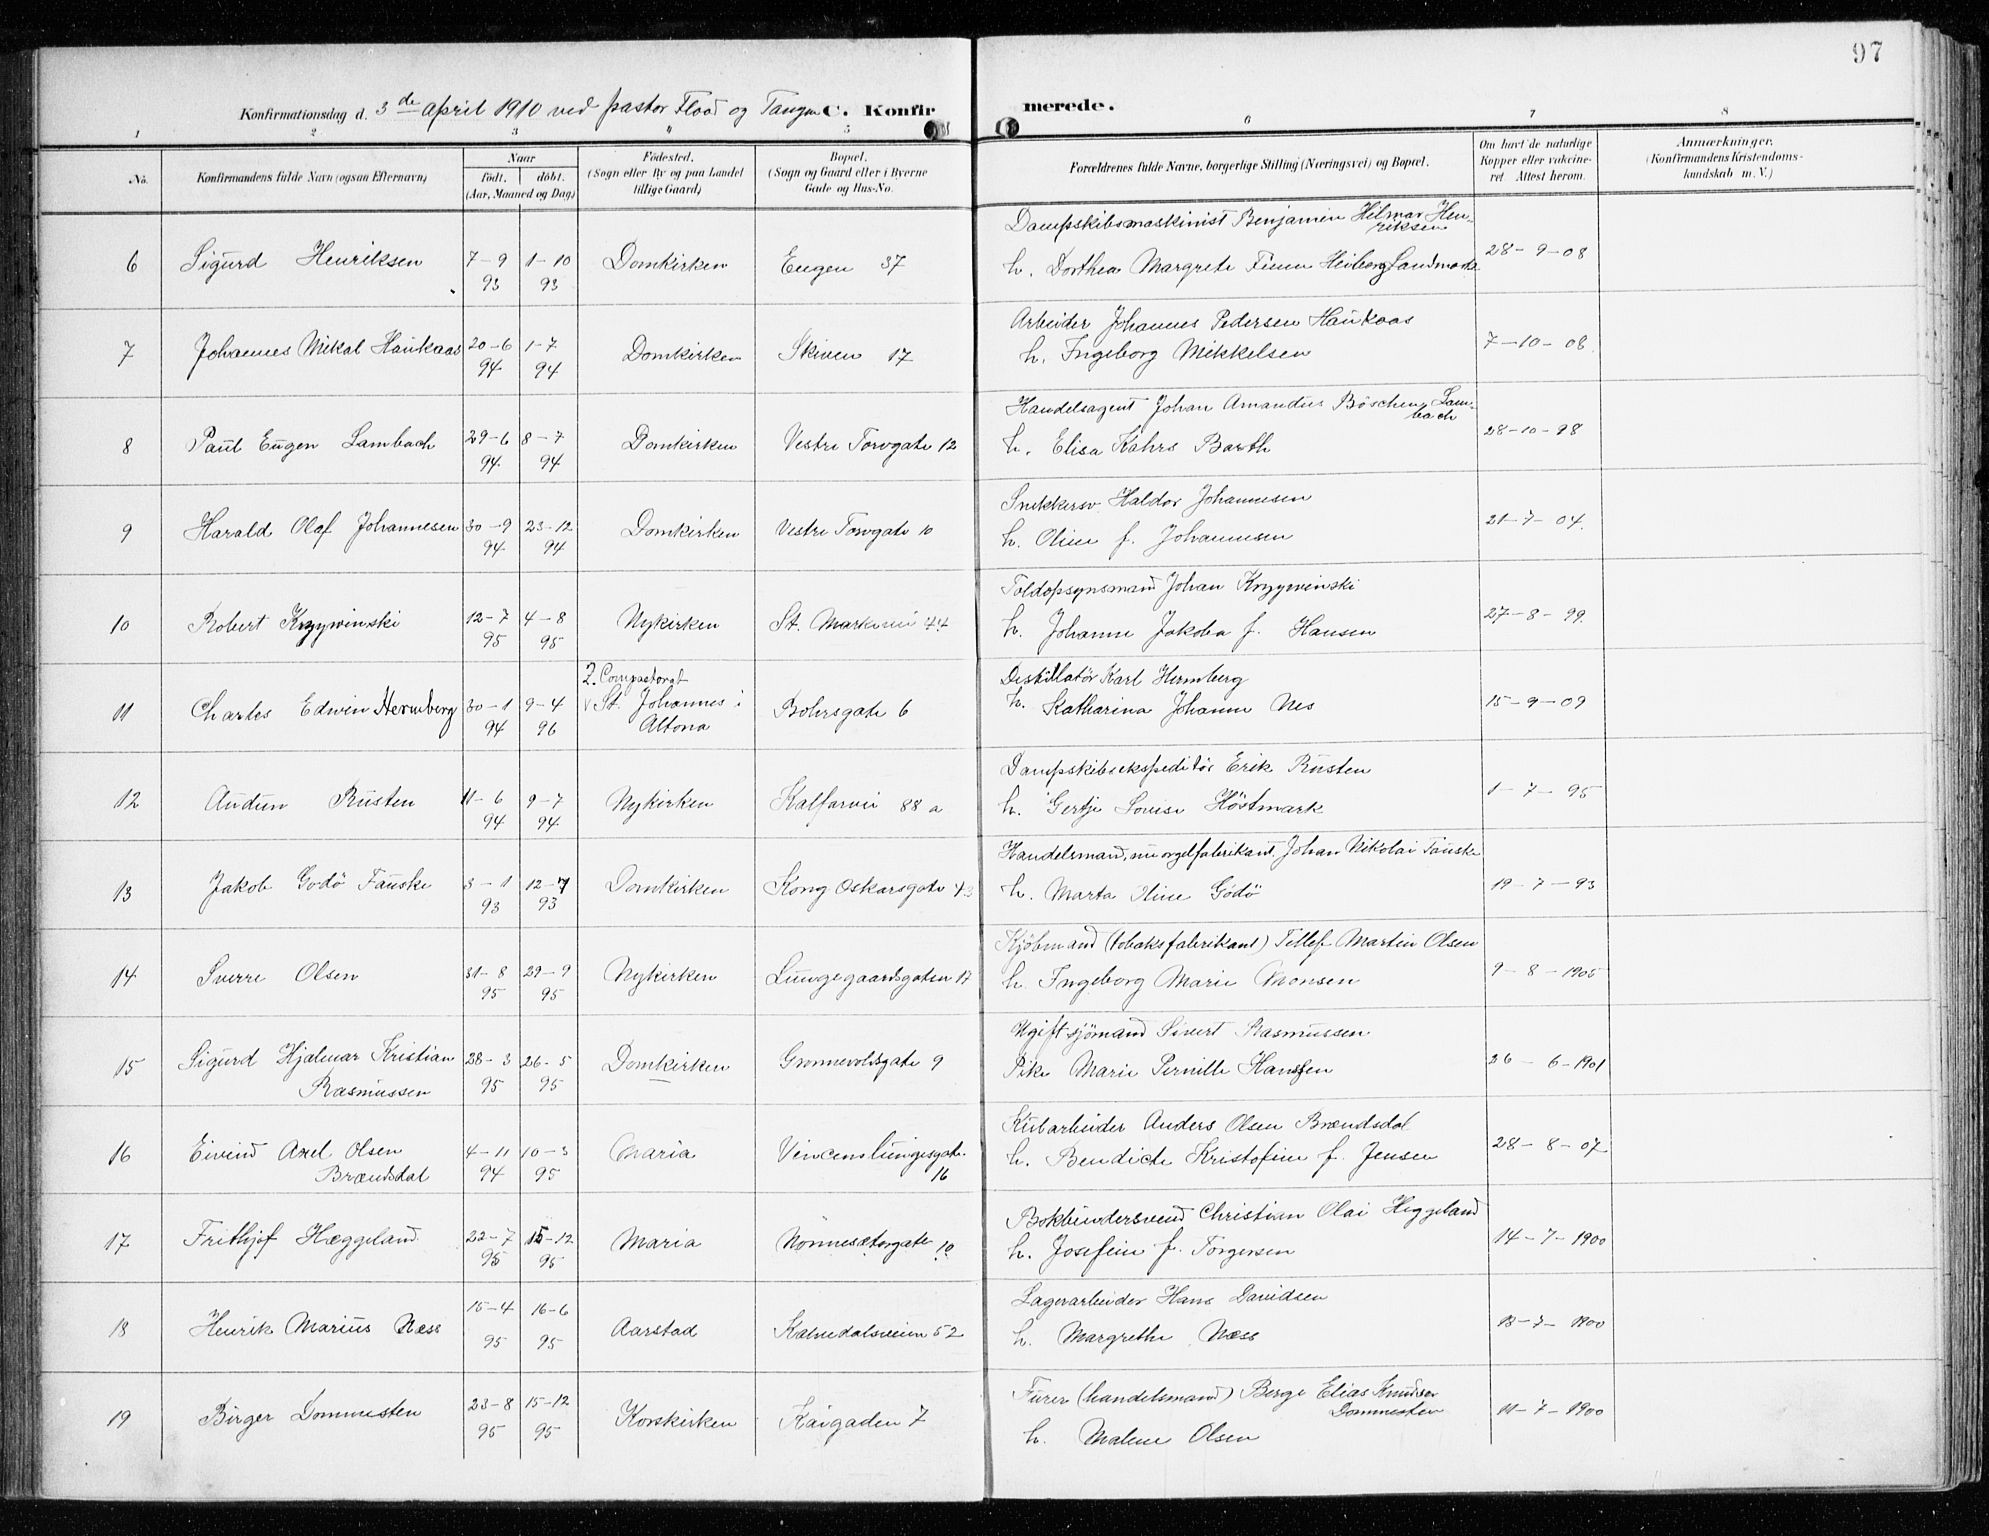 97
Konfirmationsdag d. 3de april 1910 ved pastor Flood og Tangen C. Konfirmerede.
1 2 3 4 5 6 7 8
No.
Konfirmandens fulde Navn (ogsaa Efternavn)
Naar
født. døbt.
(Aar, Maaned og Dag)
Fødested.
(Sogn eller By og paa Landet
tillige Gaard)
Bopæl.
(Sogn og Gaard eller i Byerne
Gade og Hus-No.
Forældrenes fulde Navne, borgerlige Stilling (Næringsvei) og Bopæl.
Om havt de naturlige
Kopper eller vakcine-
ret. Attest herom.
Anmærkninger.
(Konfirmandens Kristendoms-
kundskab m. V.)
Dampskibsmaskinist Benjamin Hilmar Hen-
riksen
6 Sigurd Henriksen 7-9 1-10 Domkirken Engen 37
93 93
h. Dorthea Margrete Finne Heiberg Landmark 28-9-08
Arbeider Johannes Pedersen Haukaas
7 Johannes Mikal Haukaas 20-6 1-7 Domkirken Skiven 17
94 94
h. Ingeborg Mikkelsen 7-10-08
Handelsagent Johan Amandus Böschen Lam-
bach
8 Paul Eugen Lambach 29-6 8-7 Domkirken Vestre Torvgate 12
94 94
h. Elisa Kahrs Barth 28-10-98
Snekkersv. Haldor Johannesen
9 Harald Olaf Johannesen 30-9 23-12 Domkirken Vestre Torvgate 10
94 94
h. Oline f. Johannesen 21-7-04.
Toldopsynsmand Johan Krzywinski
10 Robert Krzywinski 12-7 4-8 Nykirken St. Markevei 44
95 95
h. Johanne Jakoba f. Hansen 27-8-99.
2. Compastorat
Destillatör Karl Hermberg
11 Charles Edwin Hermberg 30-1 9-4 v St. Johannes i Bohrsgate 6
94 96 Altona
h. Katharina Johanne Nes 15-9-09
Dampskibsekspeditör Erik Rusten
12 Audun Rusten 11-6 9-7 Nykirken Kalfarvei 88 a
94 94
h. Gertje Lovise Höstmark 1-7-95
Handelsmand, nu orgelfabrikant, Johan Nikolai Fauske
13 Jakob Godö Fauske 3-1 12-7 Domkirken Kong Oskarsgate 43
93 93
h. Marta Oline Godö 19-7-93
Kjöbmand (tobaksfabrikant) Tellef Martin Olsen
14 Sverre Olsen 31-8 29-9 Nykirken Lungegaardsgaten 17
95 95
h. Ingeborg Marie Monsen 9-8-1905
Ugift sjömand Sivert Rasmussen
15 Sigurd Hjalmar Kristian 28-3 26-5 Domkirken Grønnevoldsgate 9
Rasmussen 95 95
Pike Marie Pernille Hansen 26-6-1901
Kularbeider Anders Olsen Brændsdal
16 Eivind Axel Olsen 4-11 10-3 Maria Vincenslungesgate
Brændsdal 94 95 16
h. Bendicte Kristofine f. Jensen 28-8-07
Bokbindersvend Christian Olai Heggeland
17 Frithjof Hæggeland 22-7 15-12 Maria Nonnesætergate 10
95 95
h. Josefine f. Torgersen 14-7-1900
Lagerarbeider Hans Davidsen
18 Henrik Marius Næss 15-4 16-6 Aarstad Kalvedalsveien 52
95 95
h. Margrethe Næss 13-7-1900
Furer (handelsmand) Berge Elias Knudsen
Dommesten
19 Birger Dommesten 23-8 15-12 Korskirken Kaigaden 7
95 95
h. Malene Olsen 11-7-1900